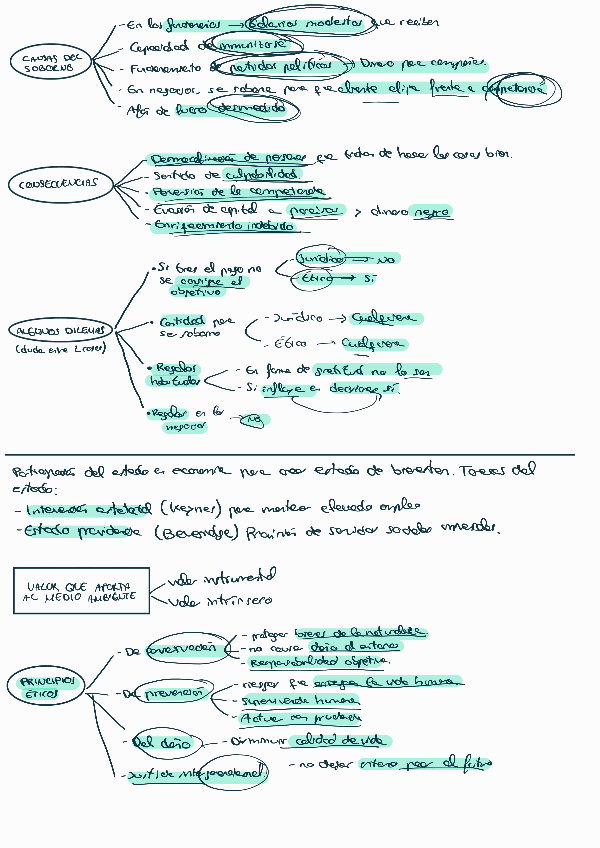 CAUSAS DEL SOBORNO
- En los funcionarios → salarios modestos que reciben
- Capacidad de inmunitarse
- Financiamiento de partidos políticos → Dinero para campañas
- En negocios, se soborna para que cliente elija frente a competencia
- Afán de lucro desmedido
CONSECUENCIAS
- Desmoralización de personas que tratan de hacer las cosas bien.
- Sentido de culpabilidad
- Perversión de la competencia
- Evasión de capital a paraísos > dinero negro
- Enriquecimiento indebido
ALGUNOS DILEMAS
(duda entre 2 cosas)
• Si tras el pago no
se consigue el
objetivo
- Jurídico → No
- Ético → Sí
• Cantidad para
se soborno
- Jurídico → Cualquiera
- Ético → Cualquiera
• Regalos
habituales
- En forma de gratitud no lo son
- Si influye en decisiones sí.
• Regalos en los
negocios
→ No
Participación del estado en economía para crear estado de bienestar. Tareas del
estado:
- Intervención estatal (Keynes) para mantener elevado empleo
- Estado providencia (Beveridge) Provisión de servicios sociales universales.
VALOR QUE APORTA
AL MEDIO AMBIENTE
valor instrumental
valor intrínseco
PRINCIPIOS
ÉTICOS
- De conservación
- proteger bienes de la naturaleza
- no causar daño al entorno
- Responsabilidad objetiva.
- De prevención
- riesgos que amenazan la vida humana.
- Supervivencia humana
- Actuar con prudencia
- Del daño
- Disminuir calidad de vida
- Justicia intergeneracional
- no dejar entorno peor al futuro